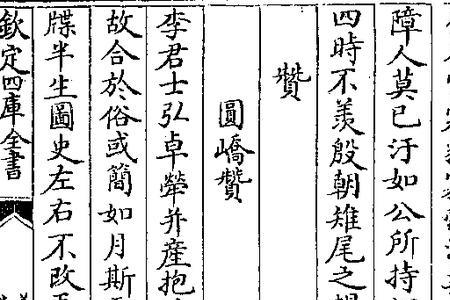 障人莫已汙如公所持
四時不羡殷朝雉尾之
贊
圓嶠贊
李君士弘卓犖并產抱
故合於俗或簡如月斯
牒半生圖史左右不改
欽定四庫全書